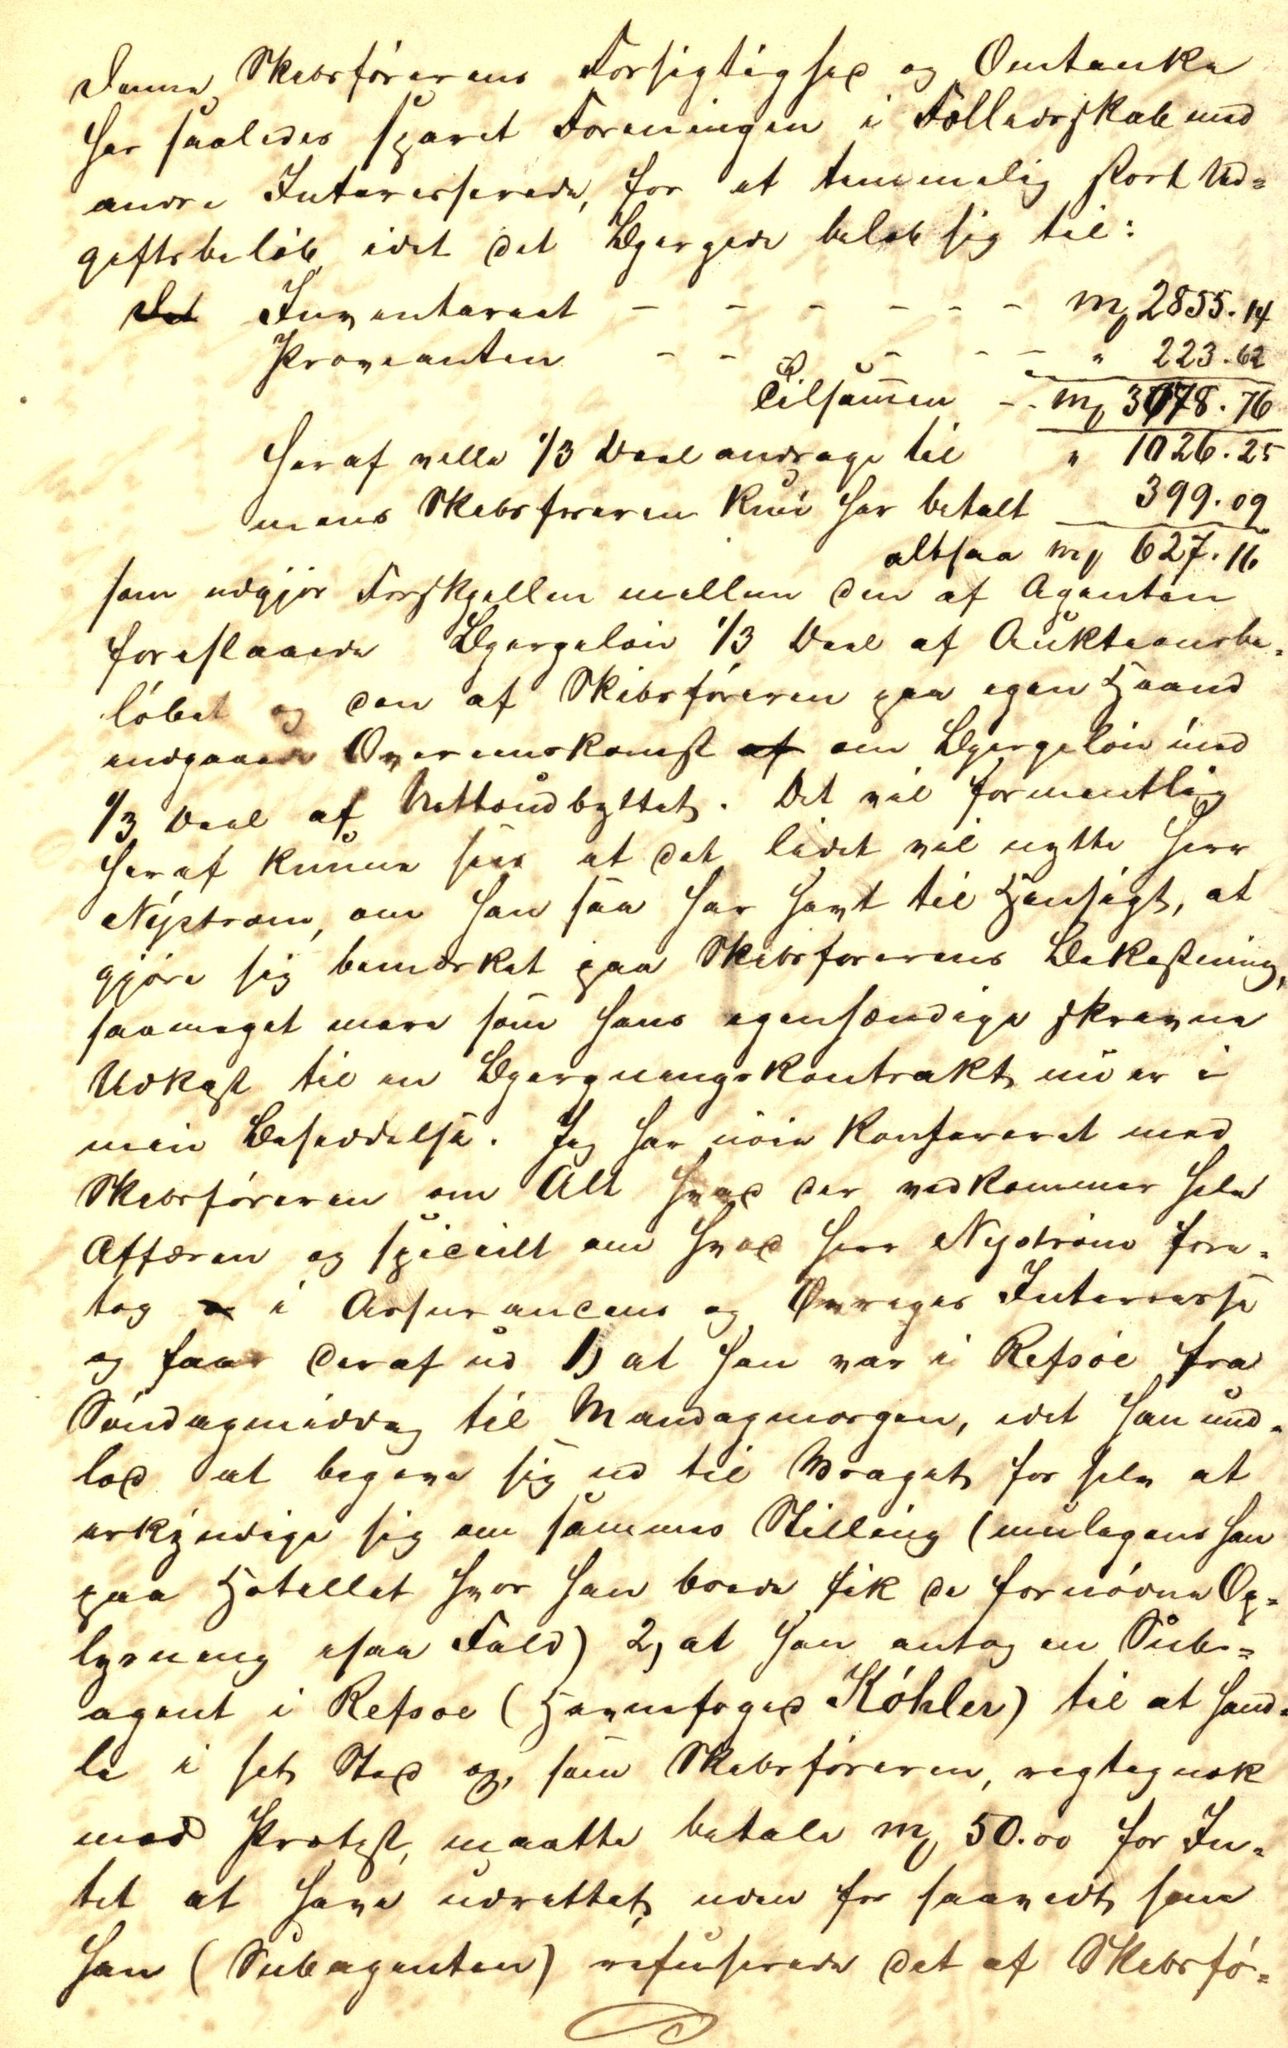 denne Skibsförerens Forsigtighed og Omtanke
har saaledes sparet Foreningen i Fölledsskab med
andre Interesserede, for et temmelig stort Ud-
giftsbelöb, idet det Bjergede beløb sig til:
Det Inventariet — — — — — — — M/ 2855.14
Provianten — — — — — — " 223.62
Tilsammen — M/ 3078.76
heraf ville 1/3 Deel andrage til " 1026.25
mens Skibsföreren kun har betalt 399.09
altsaa M/ 627.16
som udgjör Forskjellen mellem den af Agenten
foreslaaede Bjergelön 1/3 Deel af Auktionsbe-
löbet og den af Skibsföreren paa egen Haand
indgaaede Overenskomst af om Bjergelön med
1/3 Deel af Nettoudbyttet. Det vil formentlig
heraf kunne sees at det lidet vil nytte Herr
Nyström, om han saa har havt til Hensigt, at
gjöre sig bemærket paa Skibsförerens Bekostning,
saameget mere som hans egenhændige skrevne
Udkast til en Bjergningskontrakt nu er i
min Besiddelse. Jeg har nöie konfereret med
Skibsföreren om Alt hvad der vedkommer hele
Affæren og specielt om hvad Herr Nyström fore-
tog i Assurancens og Övriges Interresse
og faar deraf ud 1) at han var i Refsöe fra
Söndagmiddag til Mandagmorgen, idet han und-
lod at begive sig ud til Vraget for selv at
erkyndige sig om sammes Stilling (muligens han
paa Hotellet hvor han boede fik de fornödne Op-
lysning isaa Fald) 2) at han antog en Sub-
agent i Refsöe (Havnefoged Köhler) til at hand-
le i sit Sted og, som Skibsföreren, rigtignok
med Protest, maatte betale M/ 50.00 for In-
tet at have udrettet uden for saavidt som
han (Subagenten) refuserede det af Skibsfö-